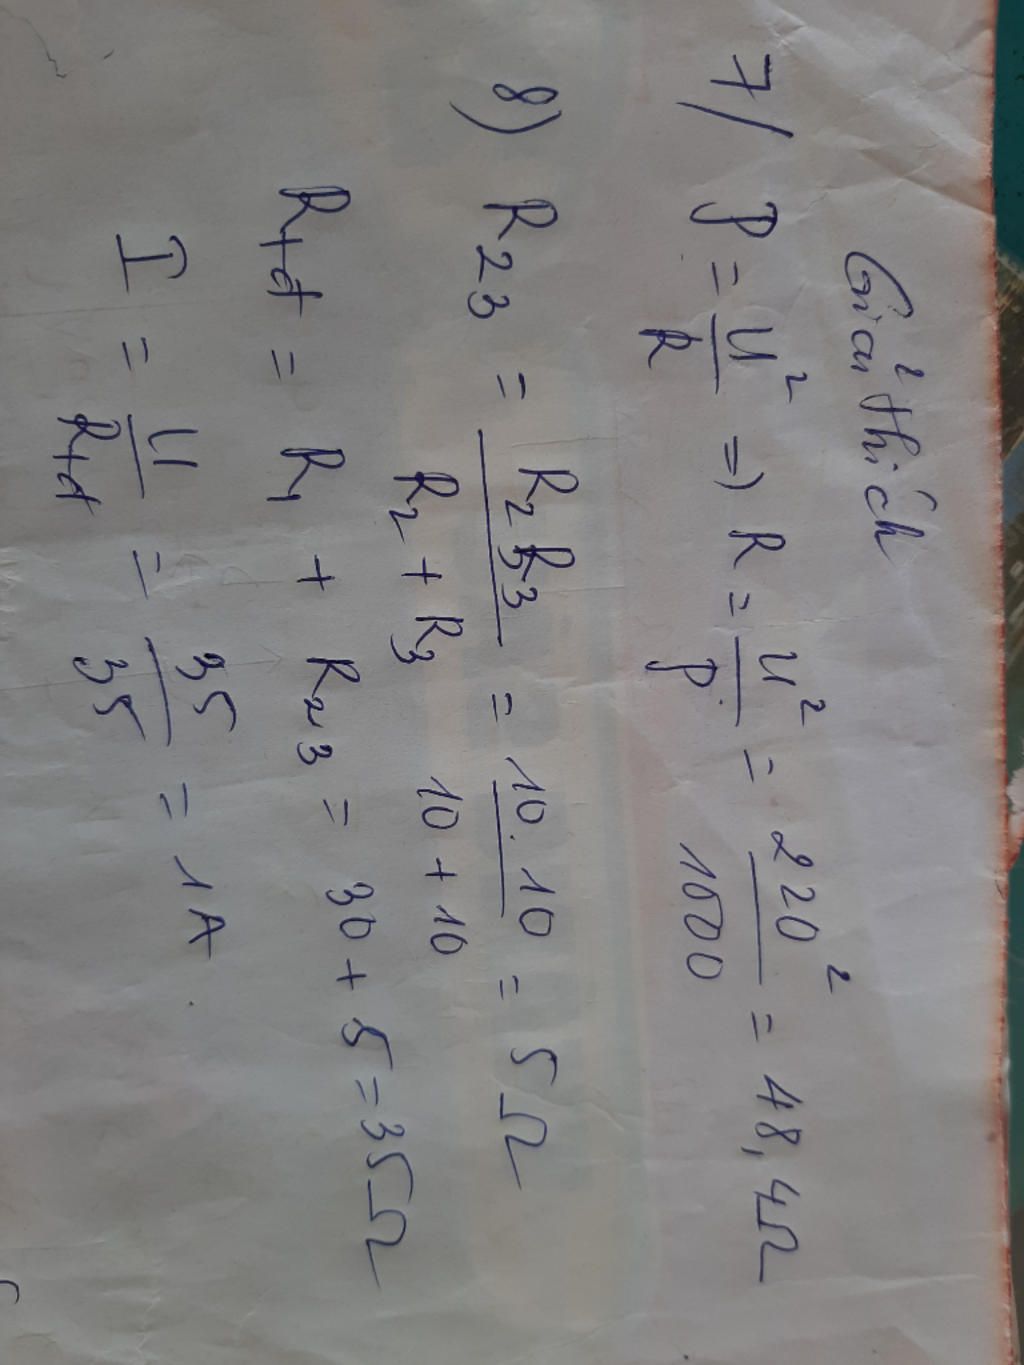 Giải thích
7/ P = U²/R => R = U²/P = 220²/1000 = 48,4Ω
8) R23 = R2R3/R2 + R3 = 10.10/10 + 10 = 5Ω
Rtđ = R1 + R23 = 30 + 5 = 35Ω
I = U/Rtđ = 35/35 = 1A